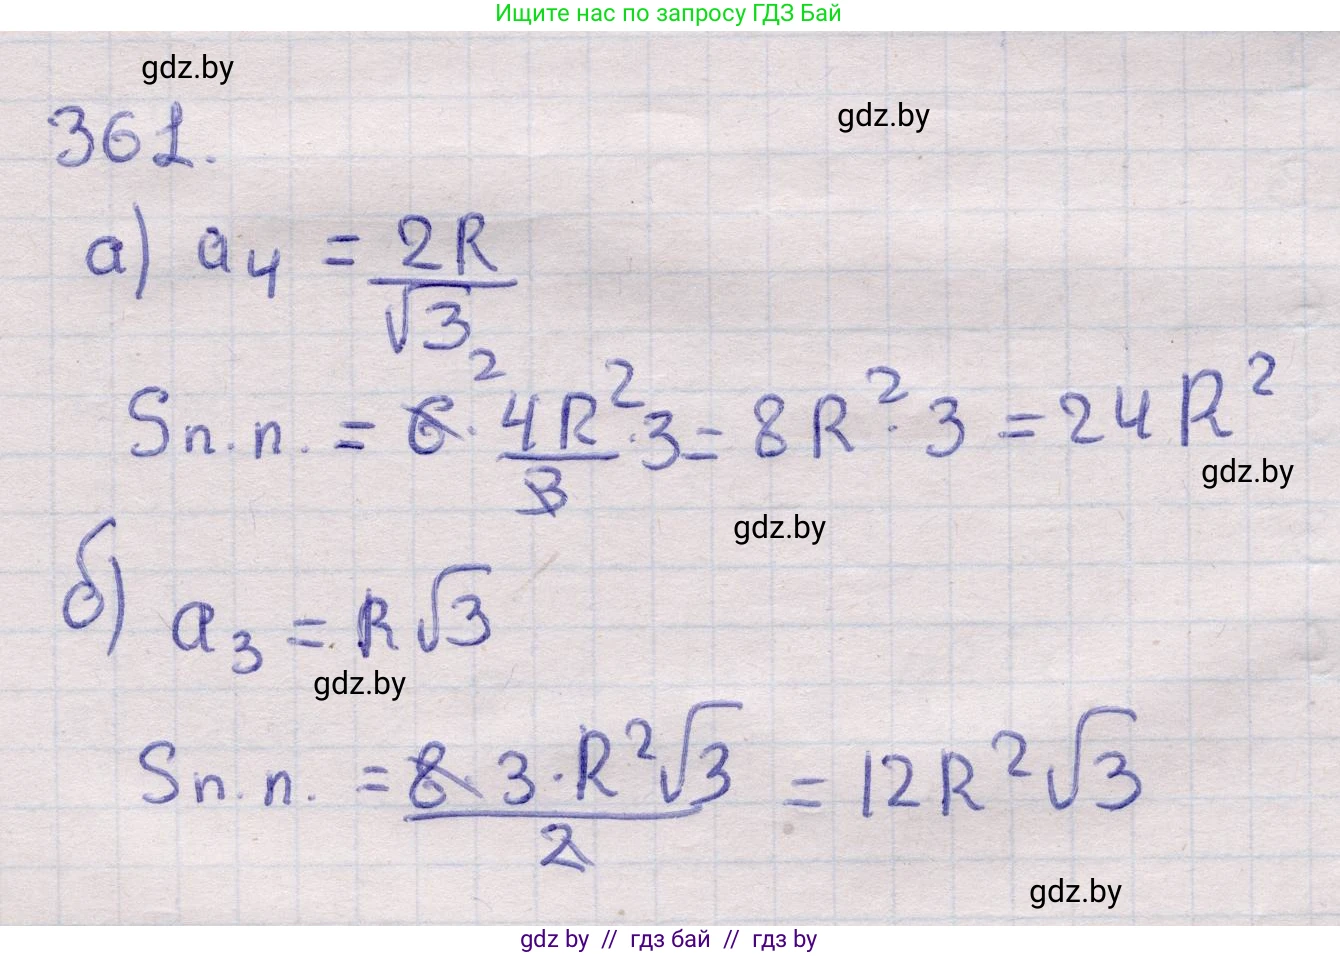 Ищите нас по запросу ГДЗ Бай
gdz.by
gdz.by
361.
а) a₄ = 2R/√3
Sп.п. = 6² · 4R²/3 · 3 = 8R² · 3 = 24R²
gdz.by
gdz.by
б) a₃ = R√3
gdz.by
Sп.п. = 8 · 3 · R²√3/2 = 12R²√3
gdz.by
gdz by // гдз бай // гдз by